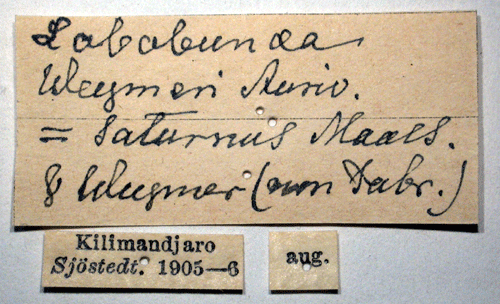 Lobobunaea
Weymeri Auriv.
= Saturnus Maass.
& Weymer (non Fabr.)
Kilimandjaro
Sjöstedt. 1905—6
aug.